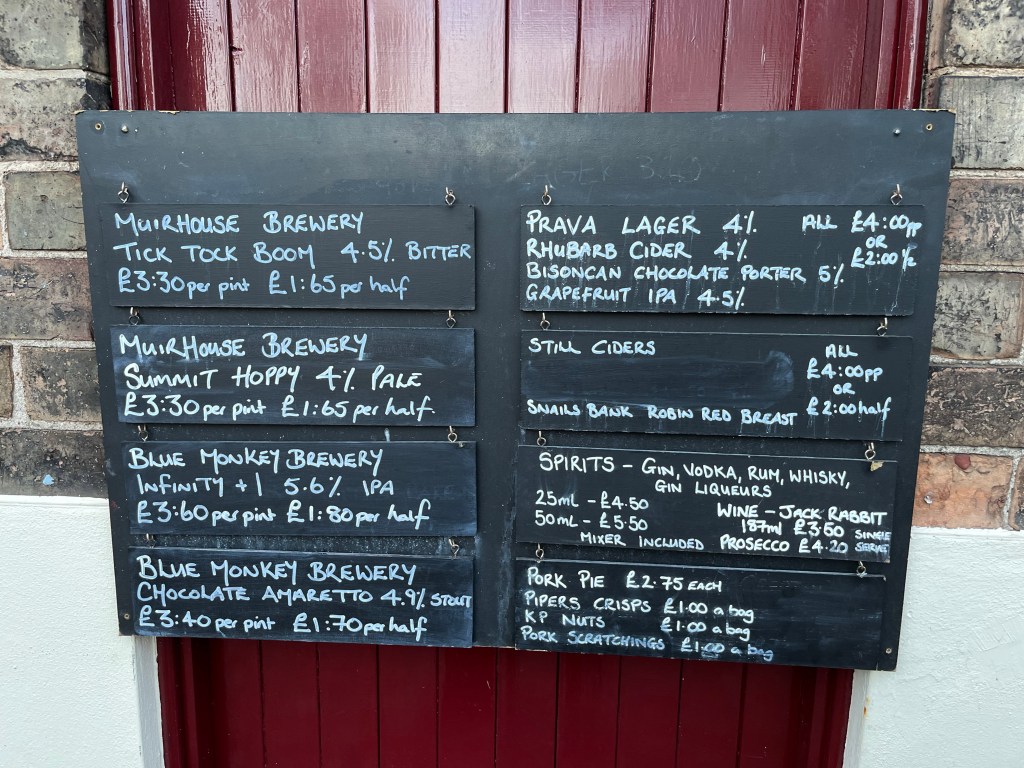 MUIRHOUSE BREWERY
TICK TOCK BOOM 4.5% BITTER
£3:30 per pint £1:65 per half
MUIRHOUSE BREWERY
SUMMIT HOPPY 4% PALE
£3:30 per pint £1:65 per half.
BLUE MONKEY BREWERY
INFINITY +1 5.6% IPA
£3:60 per pint £1:80 per half
BLUE MONKEY BREWERY
CHOCOLATE AMARETTO 4.9% STOUT
£3:40 per pint £1:70 per half
PRAVA LAGER 4% ALL £4:00pp
OR
RHUBARB CIDER 4% £2:00 ½
BISONCAN CHOCOLATE PORTER 5%
GRAPEFRUIT IPA 4.5%
STILL CIDERS ALL
£4:00pp
OR
SNAILS BANK ROBIN RED BREAST £2:00 half
SPIRITS - GIN, VODKA, RUM, WHISKY,
GIN LIQUEURS
25ml - £4.50 WINE - JACK RABBIT
50ml - £5.50 187ml £3.50 SINGLE
MIXER INCLUDED PROSECCO £4.20 SERVE
PORK PIE £2.75 EACH
PIPERS CRISPS £1.00 a bag
KP NUTS £1.00 a bag
PORK SCRATCHINGS £1.00 a bag